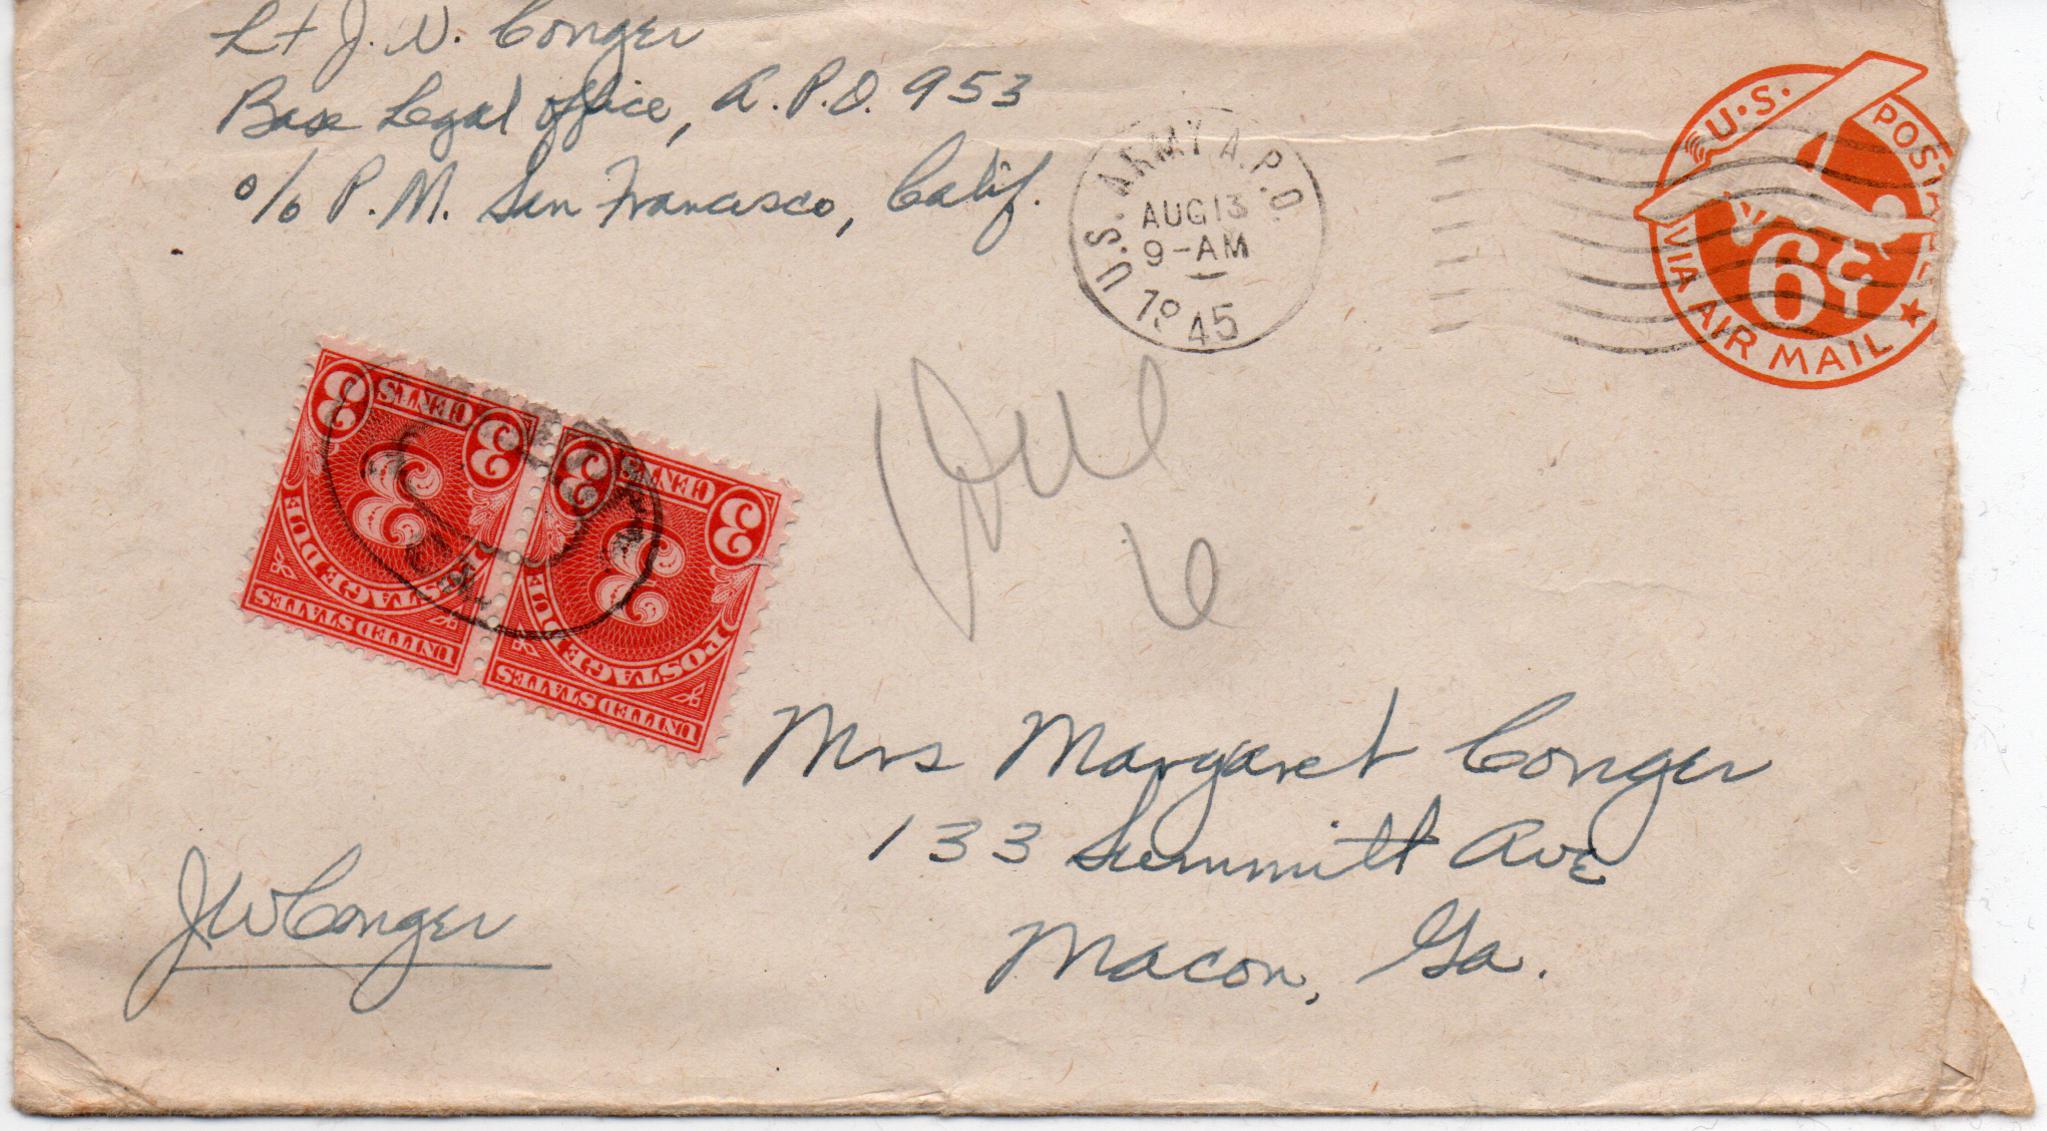 Lt J. W. Conger
Base Legal Office, A.P.O. 953
c/o P.M. San Francisco, Calif.
U.S. ARMY A.P.O.
AUG 13
9-AM
1945
U.S. POSTAGE
VIA AIR MAIL
6¢
3 CENTS 3
3
POSTAGE DUE
UNITED STATES
3 CENTS 3
3
POSTAGE DUE
UNITED STATES
Due
6
Mrs Margaret Conger
133 Summitt Ave
Macon, Ga.
JWConger